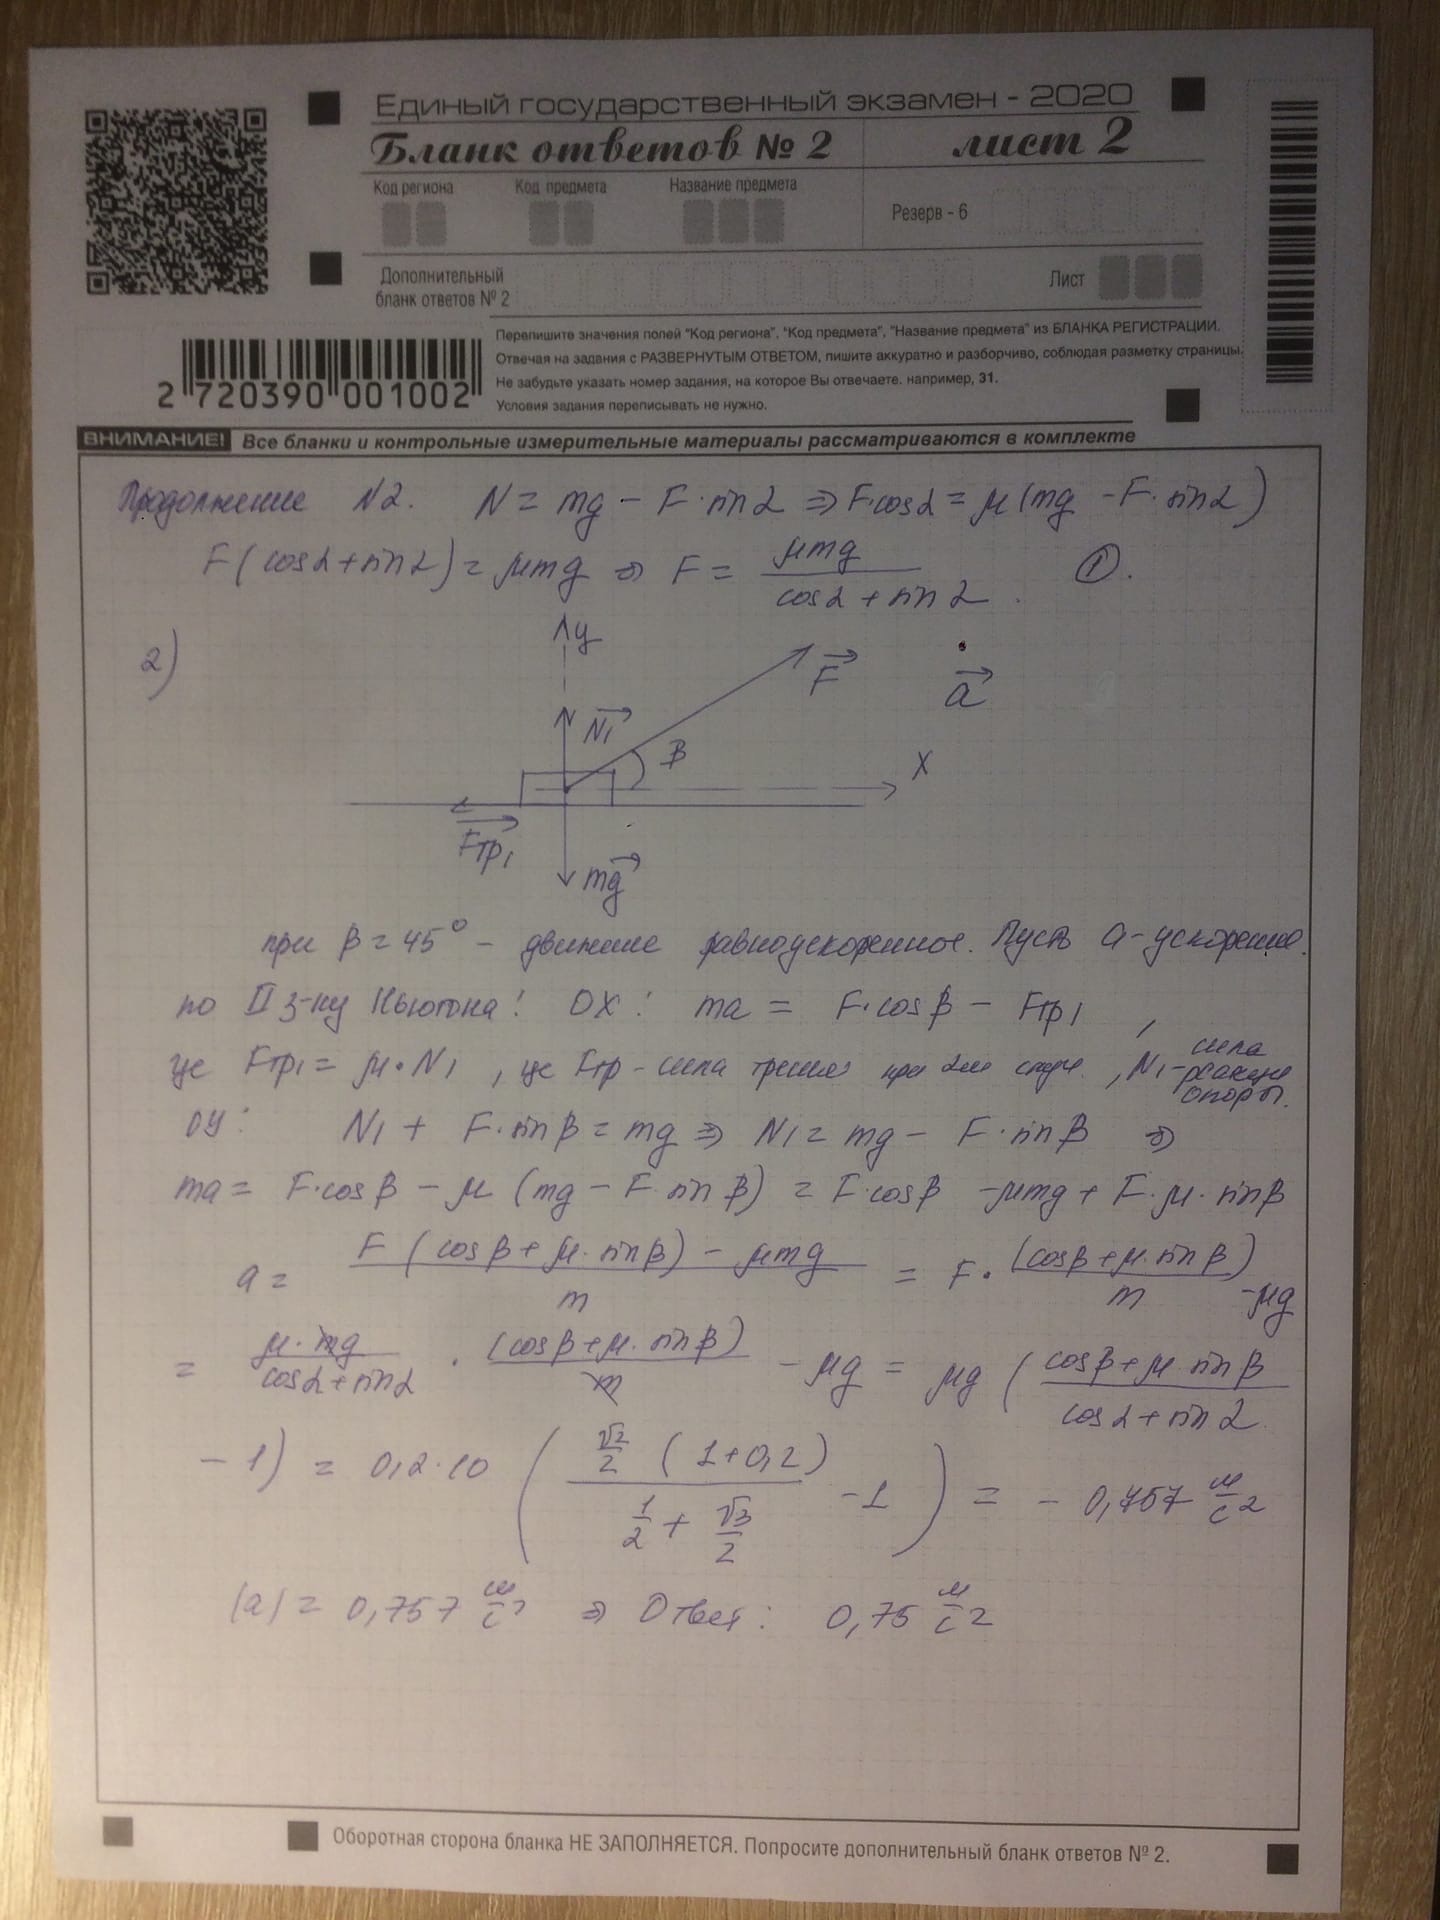 Единый государственный экзамен - 2020
Бланк ответов № 2 лист 2
Код региона Код предмета Название предмета
Резерв - 6
Дополнительный
бланк ответов № 2
Лист
Перепишите значения полей "Код региона", "Код предмета", "Название предмета" из БЛАНКА РЕГИСТРАЦИИ.
Отвечая на задания с РАЗВЕРНУТЫМ ОТВЕТОМ, пишите аккуратно и разборчиво, соблюдая разметку страницы.
Не забудьте указать номер задания, на которое Вы отвечаете. например, 31.
Условия задания переписывать не нужно.
2 720390 001002
ВНИМАНИЕ! Все бланки и контрольные измерительные материалы рассматриваются в комплекте
Продолжение N2. N = mg - F·sinα ⇒ Fcosα = μ(mg - F·sinα)
F(cosα+sinα) = μmg ⇒ F = μmg / (cosα + sinα). ①.
2)
y
F
a
N1
β
X
Fтр1
mg
при β=45° - движение равноускоренное. Пусть a-ускорение.
по II з-ну Ньютона: OX: ma = F·cosβ - Fтр1,
где Fтр1 = μ·N1, где Fтр-сила трения при 2ом случ., N1-сила реакции опоры.
OY: N1 + F·sinβ = mg ⇒ N1 = mg - F·sinβ ⇒
ma = F·cosβ - μ(mg - F·sinβ) = F·cosβ - μmg + F·μ·sinβ
a = (F(cosβ+μ·sinβ) - μmg) / m = F·(cosβ+μ·sinβ) / m - μg
= μ·mg / (cosα+sinα) · (cosβ+μ·sinβ) / m - μg = μg ((cosβ+μ sinβ) / (cosα+sinα)
- 1) = 0,2·10 ( (√2/2 (1+0,2)) / (1/2 + √3/2) - 1 ) = - 0,757 м/с2
|a| = 0,757 м/с2 ⇒ Ответ: 0,75 м/с2
Оборотная сторона бланка НЕ ЗАПОЛНЯЕТСЯ. Попросите дополнительный бланк ответов № 2.